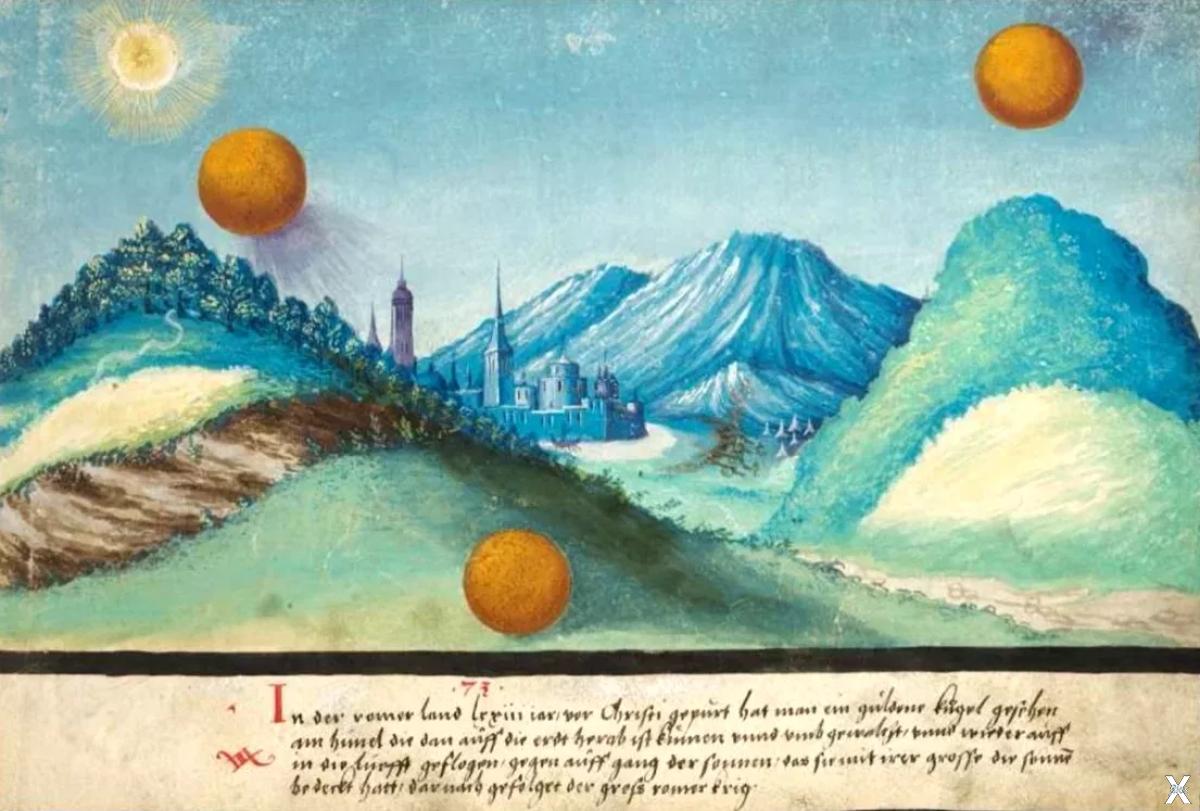 73
In der romer land lxxiii iar, vor Christi gepurt hat man ein guldene kugel gesehen
am himel die dan auff die erdt herab ist kumen vnnd vmb gewaltzt, vnnd wieder auff
in die lufft geflogen, gegen auff gang der sonnen, das sie mit irer grosse die sonne
bedeckt hatt, darnach gefolget der gross romer krig.
X